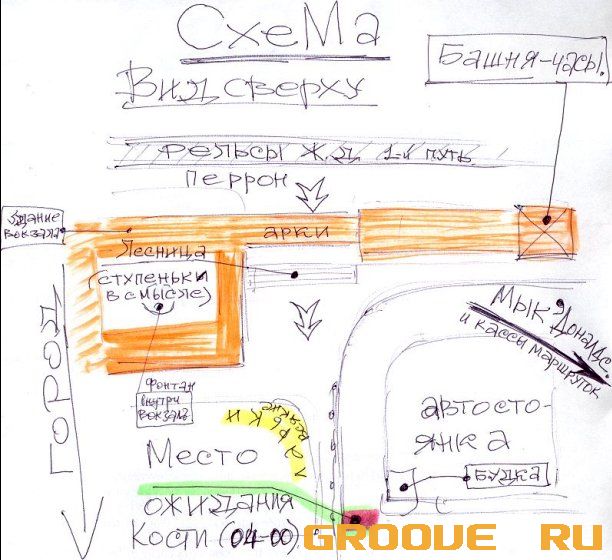 Схема
Вид сверху
Башня-часы.
рельсы ж.д 1й путь
перрон
здание
вокзала
арки
Лесница
(ступеньки
в смысле)
город
Мык'Доналдс.
и кассы маршруток
Фонтан
внутри
вокзала
ларьки
всякие
автосто-
янка
будка
Место
ожидания
Кости (04-00)
GROOVE RU